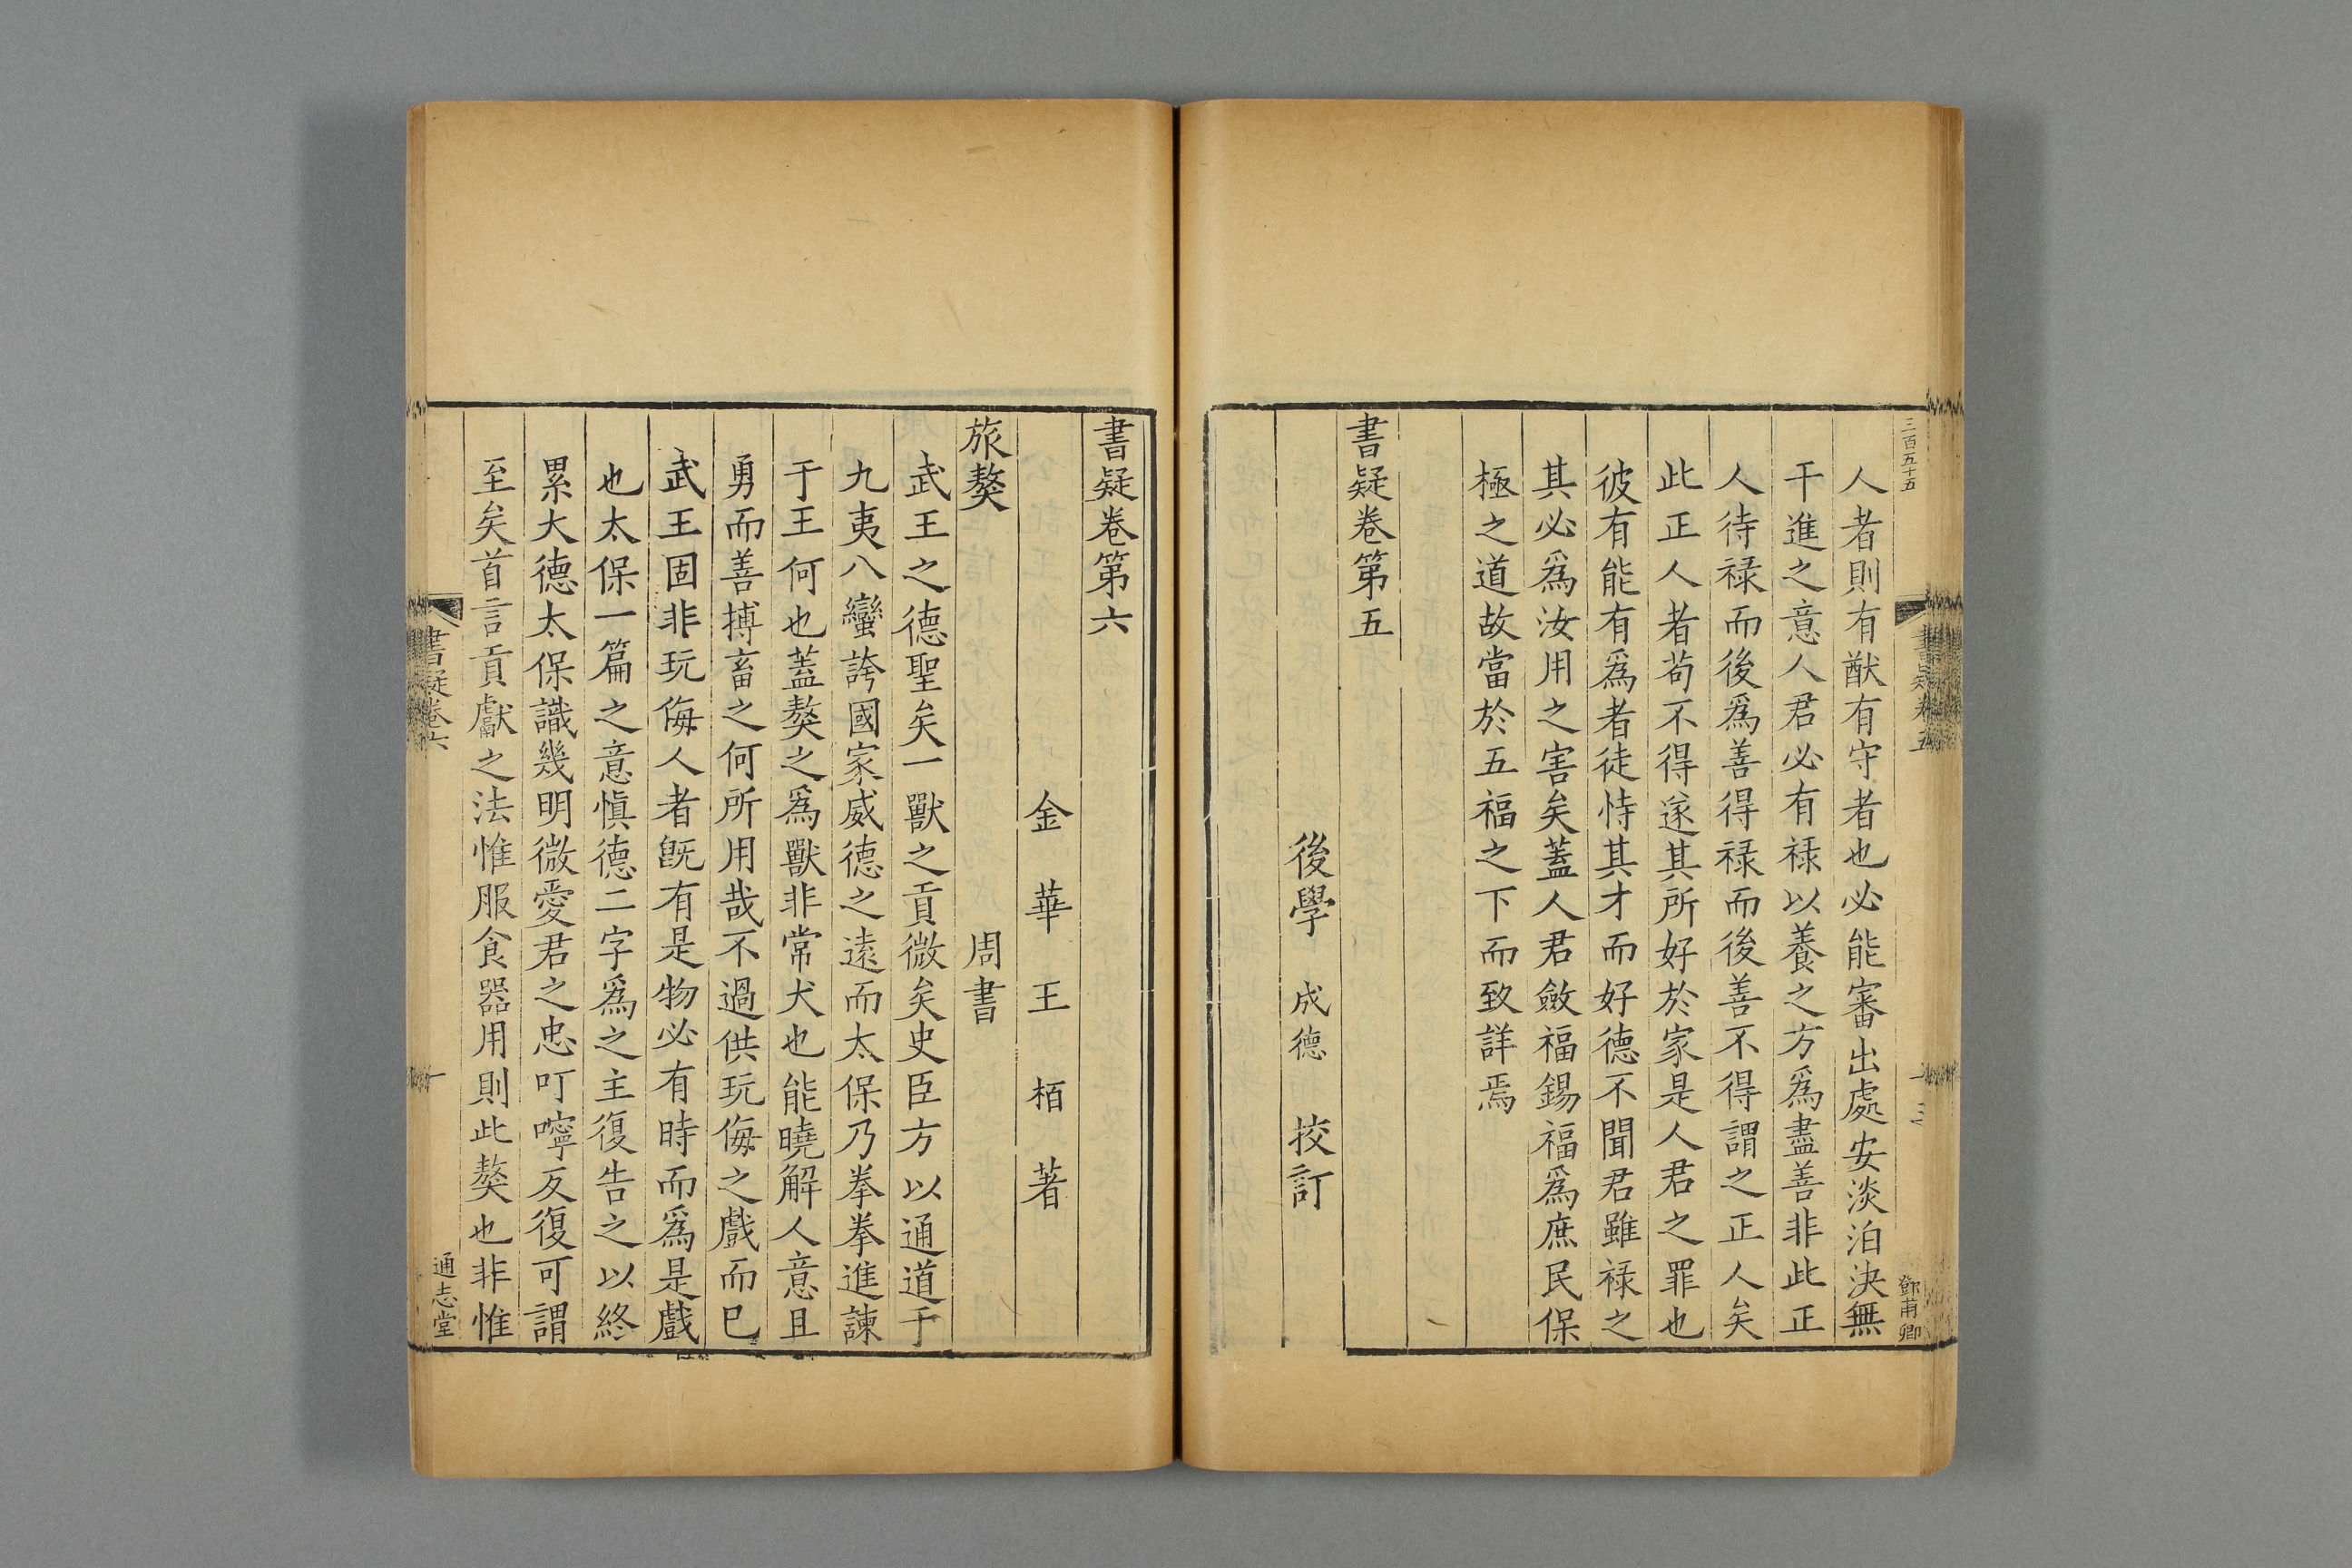 三百五十五
書疑卷五
鄧甫卿
人者則有猷有守者也必能審出處安淡泊決無
干進之意人君必有祿以養之方爲盡善非此正
人待祿而後爲善得祿而後善不得謂之正人矣
此正人者苟不得遂其所好於家是人君之罪也
彼有能有爲者徒恃其才而好德不聞君雖祿之
其必爲汝用之害矣蓋人君斂福錫福爲庶民保
極之道故當於五福之下而致詳焉
書疑卷第五
後學 成德 挍訂
書疑卷第六
金華王栢著
旅獒 周書
武王之德聖矣一獸之貢微矣史臣方以通道于
九夷八蠻誇國家威德之遠而太保乃拳拳進諫
于王何也蓋獒之爲獸非常犬也能曉解人意且
勇而善搏畜之何所用哉不過供玩侮之戲而巳
武王固非玩侮人者旣有是物必有時而爲是戲
也太保一篇之意愼德二字爲之主復告之以終
累大德太保識幾明微愛君之忠叮嚀反復可謂
至矣首言貢獻之法惟服食器用則此獒也非惟
書疑卷六
一
通志堂